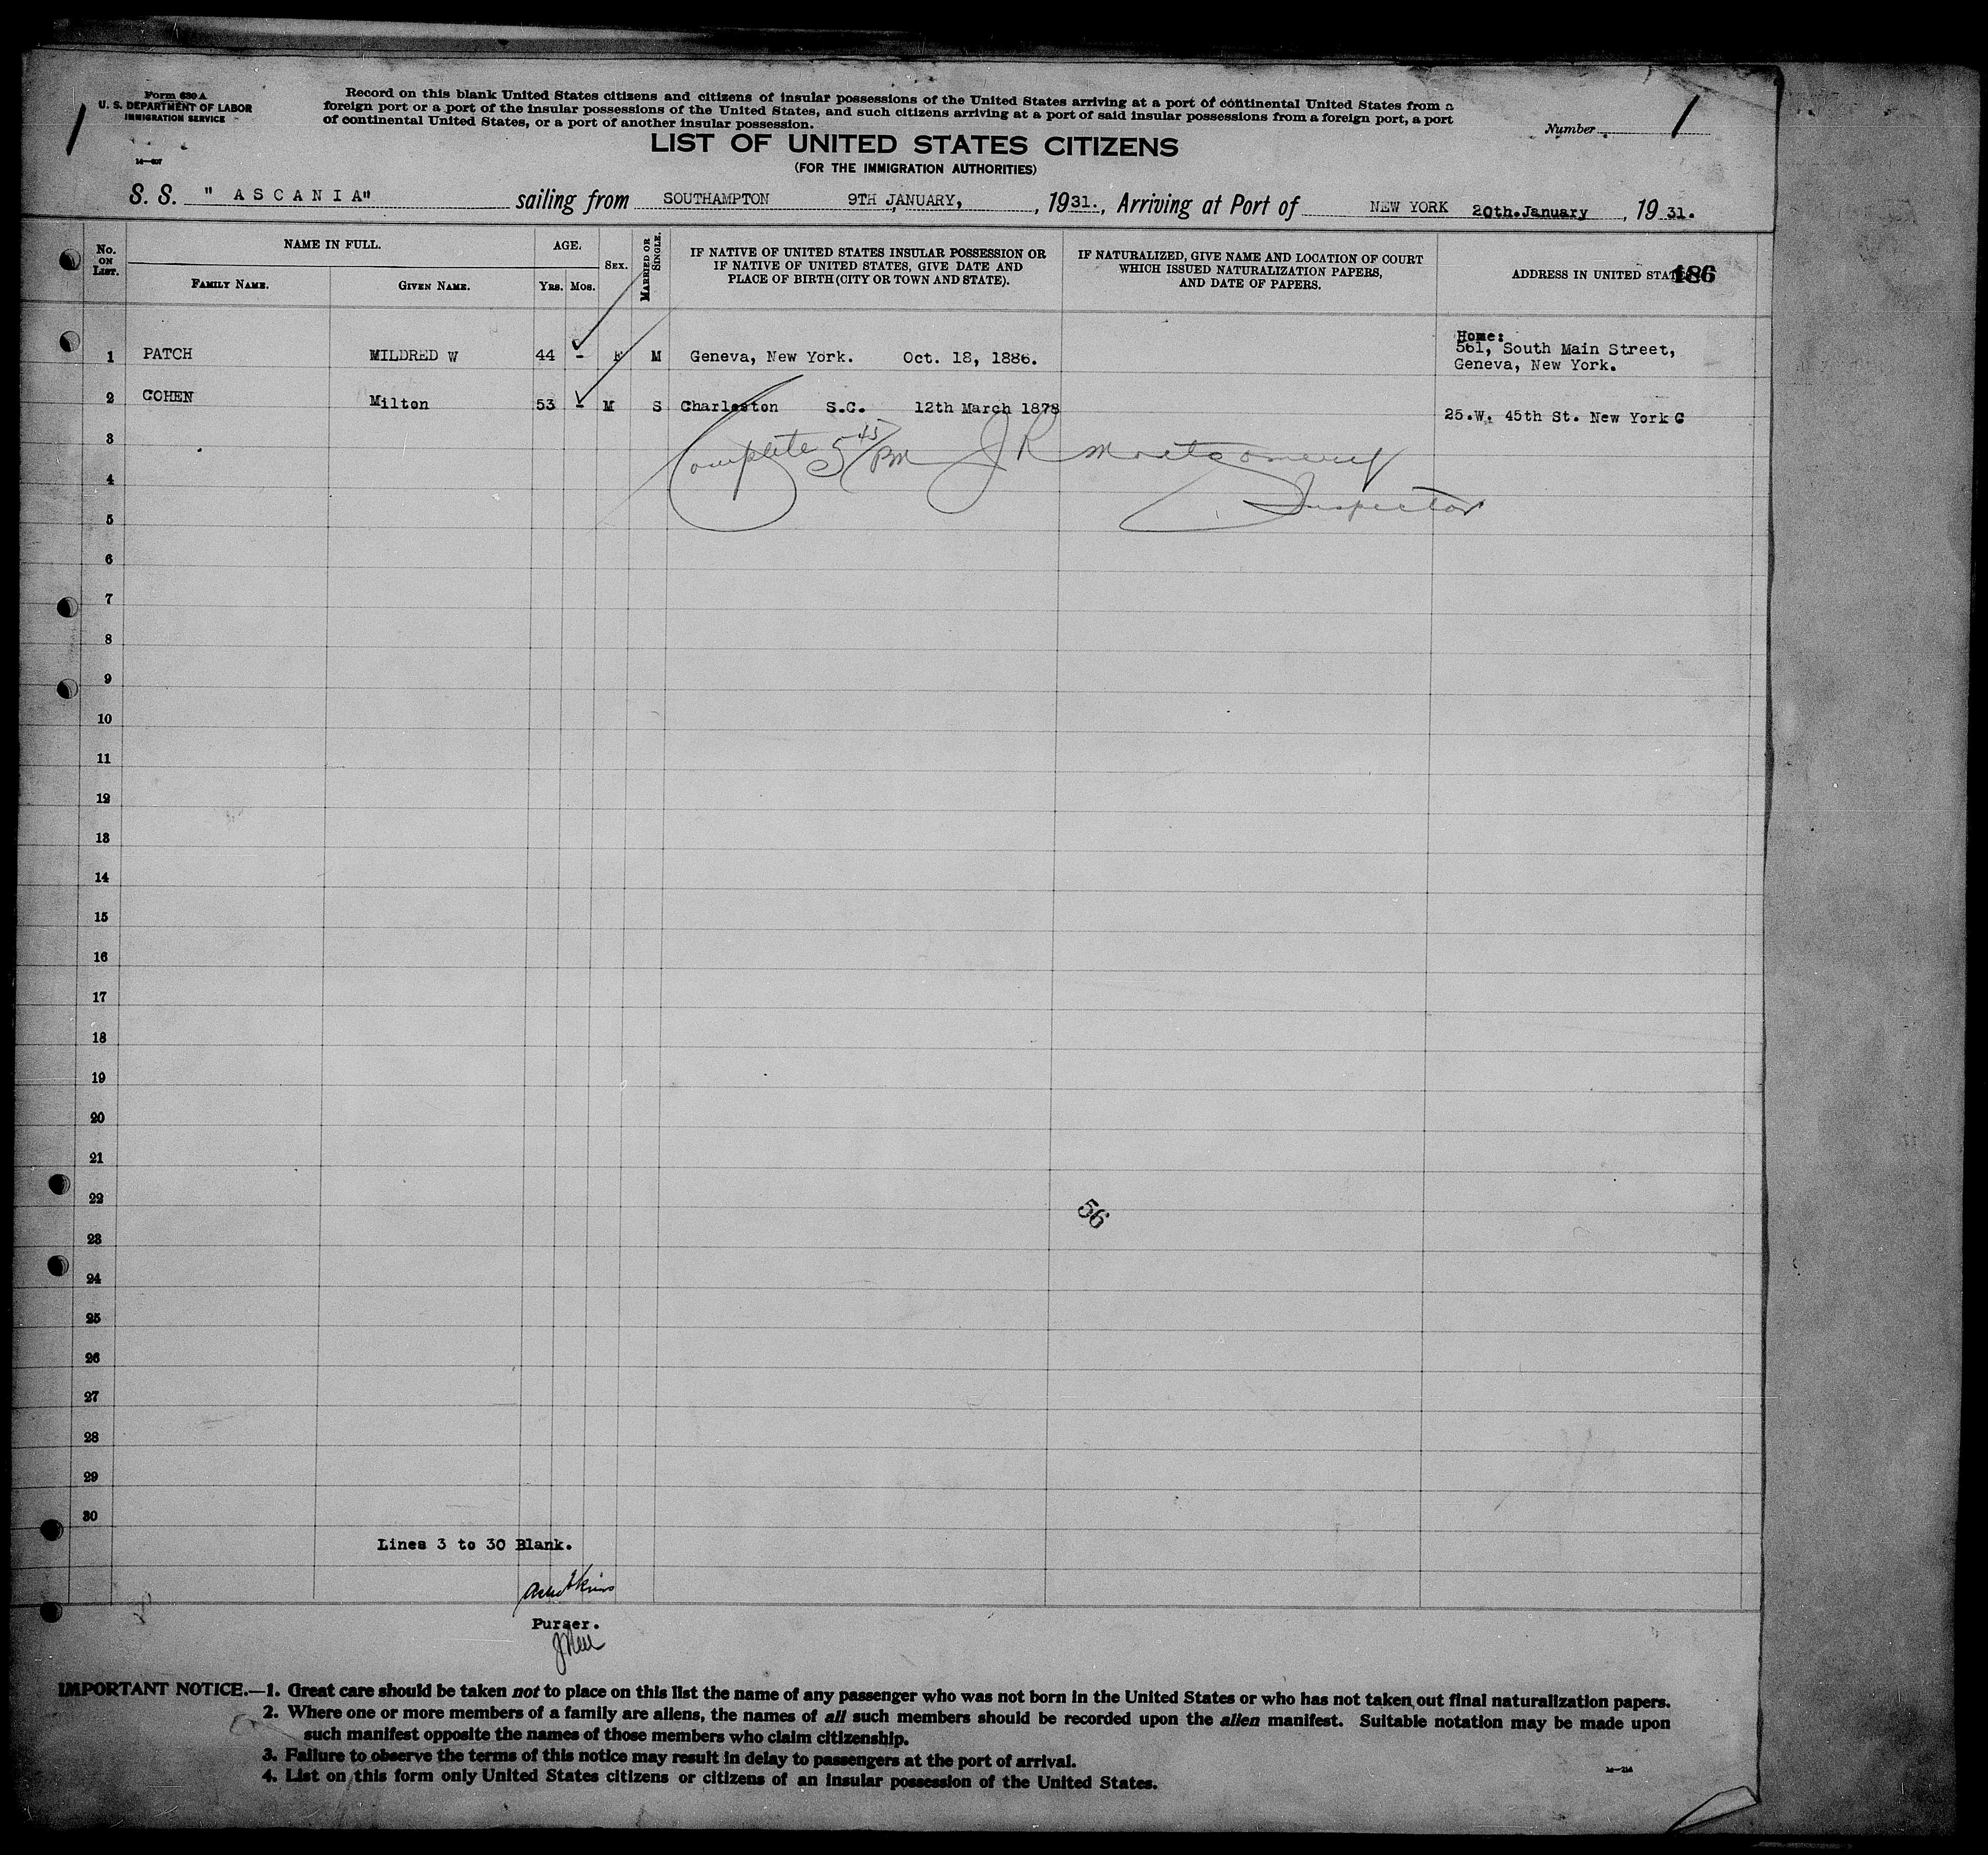 Form 630 A
U. S. DEPARTMENT OF LABOR
IMMIGRATION SERVICE
14—607
Record on this blank United States citizens and citizens of insular possessions of the United States arriving at a port of continental United States from a
foreign port or a port of the insular possessions of the United States, and such citizens arriving at a port of said insular possessions from a foreign port, a port
of continental United States, or a port of another insular possession.
Number 1
1
LIST OF UNITED STATES CITIZENS
(FOR THE IMMIGRATION AUTHORITIES)
S. S. " A S C A N I A" sailing from SOUTHAMPTON 9TH JANUARY, , 1931., Arriving at Port of NEW YORK 20th.January , 19 31.
No. ON LIST.
NAME IN FULL.
FAMILY NAME.
GIVEN NAME.
AGE.
YRS. MOS.
SEX.
MARRIED OR SINGLE.
IF NATIVE OF UNITED STATES INSULAR POSSESSION OR
IF NATIVE OF UNITED STATES, GIVE DATE AND
PLACE OF BIRTH (CITY OR TOWN AND STATE).
IF NATURALIZED, GIVE NAME AND LOCATION OF COURT
WHICH ISSUED NATURALIZATION PAPERS,
AND DATE OF PAPERS.
ADDRESS IN UNITED STATES.
186
Home:
1 PATCH MILDRED W 44 - F M Geneva, New York. Oct. 18, 1886. 561, South Main Street,
Geneva, New York.
2 COHEN Milton 53 - M S Charleston S.C. 12th March 1878 25.W. 45th St. New York C
3
Complete 5 45/PM J R Montgomery
4
Inspector
5
6
7
8
9
10
11
12
13
14
15
16
17
18
19
20
21
22
56
23
24
25
26
27
28
29
30
Lines 3 to 30 Blank.
Purser.
IMPORTANT NOTICE.—1. Great care should be taken not to place on this list the name of any passenger who was not born in the United States or who has not taken out final naturalization papers.
2. Where one or more members of a family are aliens, the names of all such members should be recorded upon the alien manifest. Suitable notation may be made upon
such manifest opposite the names of those members who claim citizenship.
3. Failure to observe the terms of this notice may result in delay to passengers at the port of arrival.
4. List on this form only United States citizens or citizens of an insular possession of the United States.
14—214